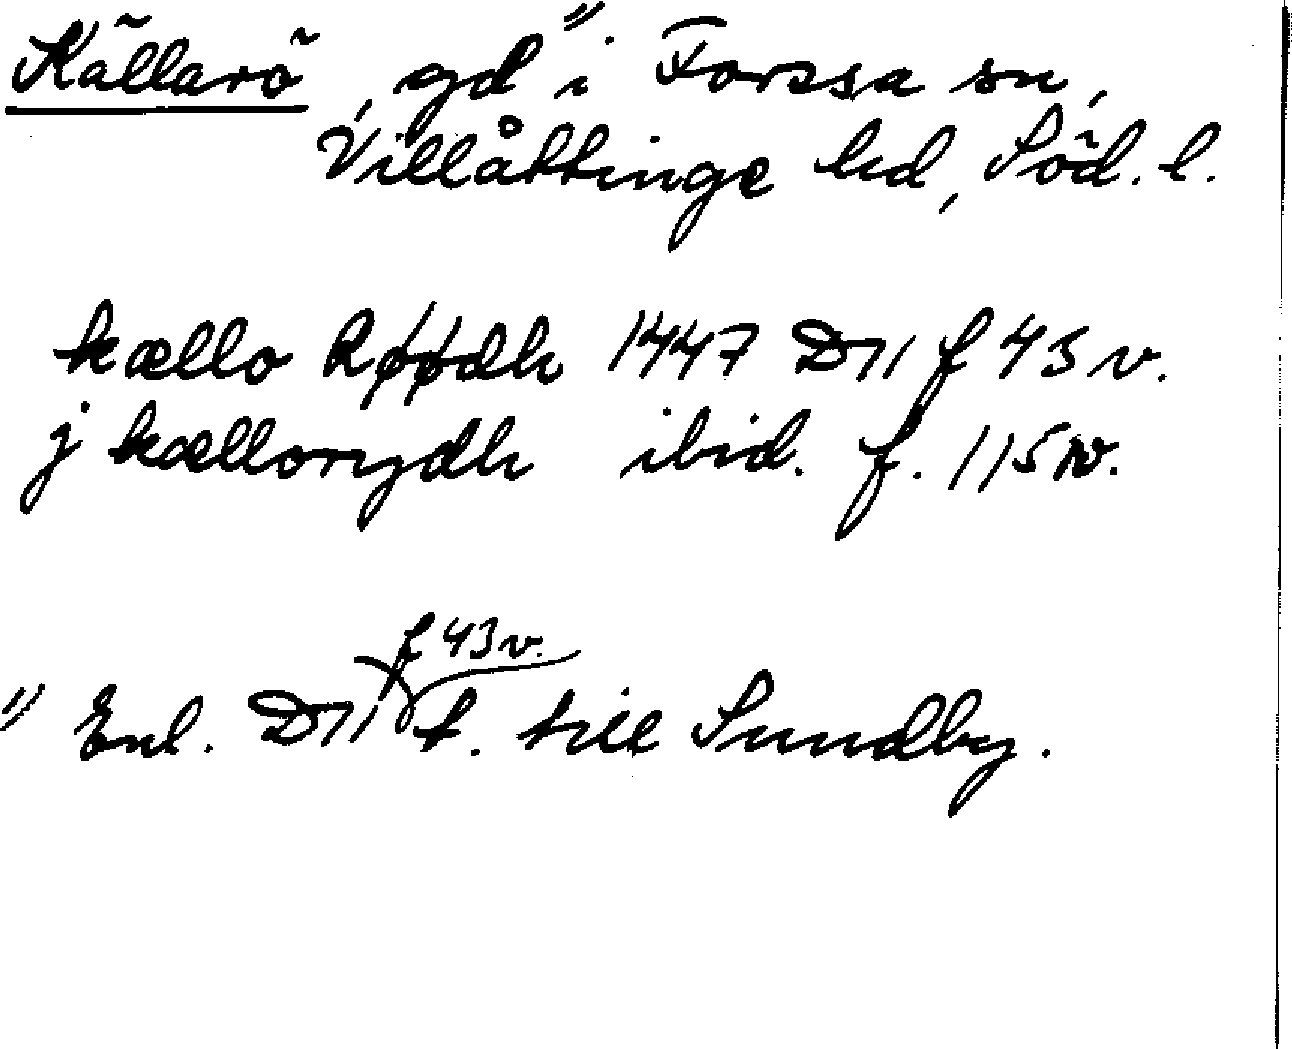 Källarö, gd¹⁾ i Forssa sn,
Villåttinge hd, Söd. l.
kællo Røødh 1447 D11 f 43 v.
j kællorydh ibid. f. 115 v.
f 43 v.
¹⁾ Enl. D11 t. till Sundby.